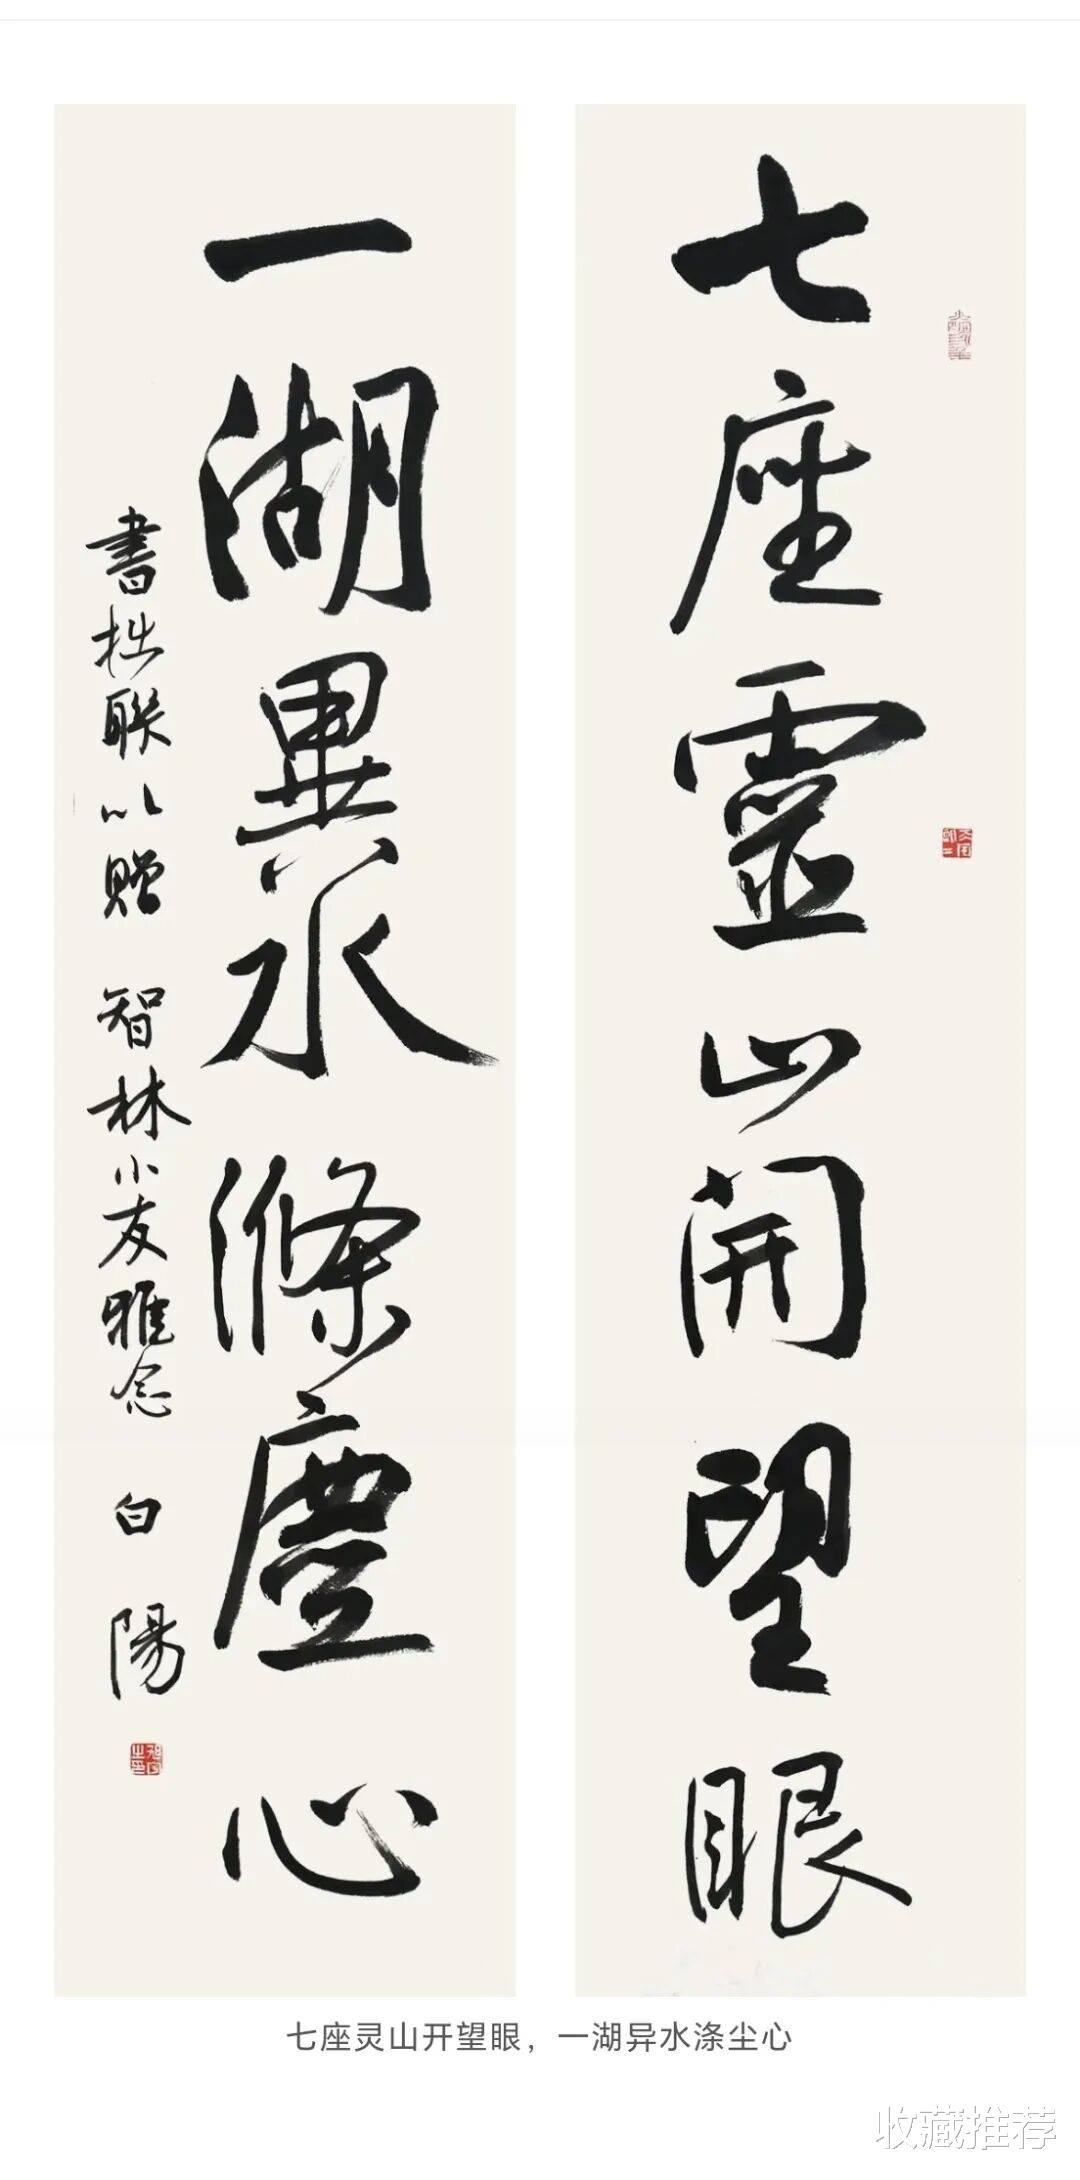 七座靈山開望眼
一湖異水滌塵心
書拙聯以贈 智林小友雅念 白陽
七座灵山开望眼，一湖异水涤尘心
收藏推荐